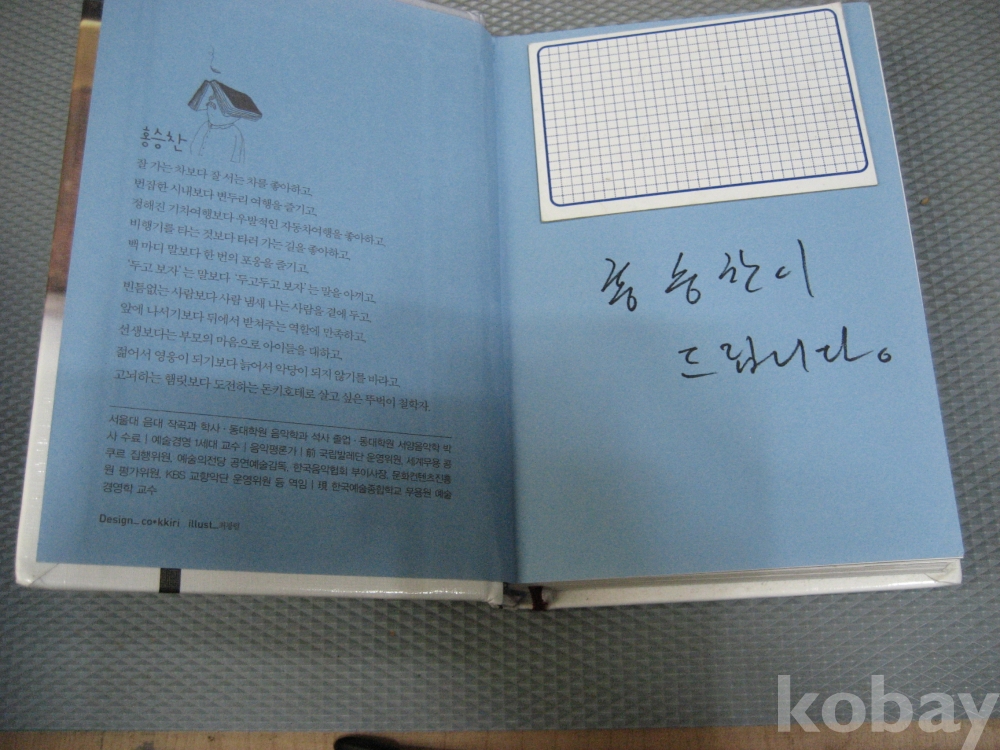 홍승찬
잘 가는 차보다 잘 서는 차를 좋아하고,
번잡한 시내보다 변두리 여행을 즐기고,
정해진 기차여행보다 우발적인 자동차여행을 좋아하고,
비행기를 타는 것보다 타러 가는 길을 좋아하고,
백 마디 말보다 한 번의 포옹을 즐기고,
'두고 보자'는 말보다 '두고두고 보자'는 말을 아끼고,
빈틈없는 사람보다 사람 냄새 나는 사람을 곁에 두고,
앞에 나서기보다 뒤에서 받쳐주는 역할에 만족하고,
선생보다는 부모의 마음으로 아이들을 대하고,
젊어서 영웅이 되기보다 늙어서 악당이 되지 않기를 바라고,
고뇌하는 햄릿보다 도전하는 돈키호테로 살고 싶은 뚜벅이 철학자.
서울대 음대 작곡과 학사 · 동대학원 음악학과 석사 졸업 · 동대학원 서양음악학 박
사 수료 | 예술경영 1세대 교수 | 음악평론가 | 前 국립발레단 운영위원, 세계무용 콩
쿠르 집행위원, 예술의전당 공연예술감독, 한국음악협회 부이사장, 문화컨텐츠진흥
원 평가위원, KBS 교향악단 운영위원 등 역임 | 現 한국예술종합학교 무용원 예술
경영학 교수
Design_ co•kkiri illust_
홍승찬이
드립니다.
kobay